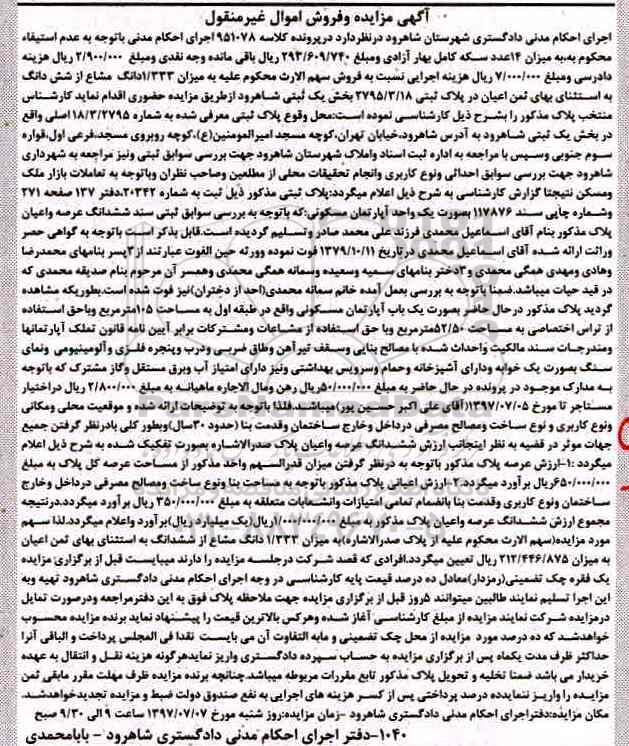 آگهی مزایده وفروش اموال غیرمنقول
اجرای احکام مدنی دادگستری شهرستان شاهرود درنظردارد درپرونده کلاسه ۹۵۱۰۷۸ اجرای احکام مدنی باتوجه به عدم استیفاء
محکوم به،به میزان ۱۴عدد سکه کامل بهار آزادی ومبلغ ۲۹۳/۶۰۹/۷۴۰ ریال باقی مانده وجه نقدی ومبلغ ۲/۹۰۰/۰۰۰ ریال هزینه
دادرسی ومبلغ ۷/۰۰۰/۰۰۰ ریال هزینه اجرایی نسبت به فروش سهم الارث محکوم علیه به میزان ۱/۳۳۳دانگ مشاع از شش دانگ
به استثنای بهای ثمن اعیان در پلاک ثبتی ۲۷۹۵/۳/۱۸ بخش یک ثبتی شاهرود ازطریق مزایده حضوری اقدام نماید کارشناس
منتخب پلاک مذکور را بشرح ذیل کارشناسی نموده است:محل وقوع پلاک ثبتی معرفی شده به شماره ۱۸/۳/۲۷۹۵ اصلی واقع
در بخش یک ثبتی شاهرود به آدرس شاهرود،خیابان تهران،کوچه مسجد امیرالمومنین(ع)،کوچه روبروی مسجد،فرعی اول،قواره
سوم جنوبی وسپس با مراجعه به اداره ثبت اسناد واملاک شهرستان شاهرود جهت بررسی سوابق ثبتی ونیز مراجعه به شهرداری
شاهرود جهت بررسی سوابق احداثی ونوع کاربری وانجام تحقیقات محلی از مطلعین وصاحب نظران وباتوجه به تعاملات بازار ملک
ومسکن نتیجتا گزارش کارشناسی به شرح ذیل اعلام میگردد:پلاک ثبتی مذکور ذیل ثبت به شماره ۲۰۳۴۲،دفتر ۱۳۷ صفحه ۲۷۱
وشماره چاپی سند ۱۱۷۸۷۶ بصورت یک واحد آپارتمان مسکونی:که باتوجه به بررسی سوابق ثبتی سند ششدانگ عرصه واعیان
پلاک مذکور بنام آقای اسماعیل محمدی فرزند علی محمد صادر وتسلیم گردیده است.قابل بذکر است باتوجه به گواهی حصر
وراثت ارائه شده آقای اسماعیل محمدی درتاریخ ۱۳۷۹/۱۰/۱۱ فوت نموده وورثه حین الفوت عبارتند از۳پسر بنامهای محمدرضا
وهادی ومهدی همگی محمدی و۳دختر بنامهای سمیه وسعیده وسمانه همگی محمدی وهمسر آن مرحوم بنام صدیقه محمدی که
در قید حیات میباشد.ضمنا باتوجه به بررسی بعمل آمده خانم سمانه محمدی(احد از دختران)نیز فوت شده است.بطوریکه مشاهده
گردید پلاک مذکور درحال حاضر بصورت یک باب آپارتمان مسکونی واقع در طبقه اول به مساحت ۱۰۵مترمربع وباحق استفاده
از تراس اختصاصی به مساحت ۵۲/۵۰مترمربع وبا حق استفاده از مشاعات ومشترکات برابر آیین نامه قانون تملک آپارتمانها
ومندرجات سند مالکیت واحداث شده با مصالح بنایی وسقف تیرآهن وطاق ضربی ودرب وپنجره فلزی وآلومینیومی ونمای
سنگ بصورت یک خوابه ودارای آشپزخانه وحمام وسرویس بهداشتی ونیز دارای امتیاز آب وبرق مستقل وگاز مشترک که باتوجه
به مدارک موجود در پرونده در حال حاضر به مبلغ ۵۰/۰۰۰/۰۰۰ریال رهن ومال الاجاره ماهیانه به مبلغ ۲/۸۰۰/۰۰۰ ریال دراختیار
مستاجر تا مورخ ۱۳۹۷/۰۷/۰۵(آقای علی اکبر حسین پور)میباشد.فلذا باتوجه به توضیحات ارائه شده و موقعیت محلی ومکانی
ونوع کاربری و نوع ساخت ومصالح مصرفی درداخل وخارج ساختمان وقدمت بنا (حدود ۳۰سال)وبطور کلی بادرنظر گرفتن جمیع
جهات موثر در قضیه به نظر اینجانب ارزش ششدانگ عرصه واعیان پلاک صدرالاشاره بصورت تفکیک شده به شرح ذیل اعلام
میگردد :۱-ارزش عرصه پلاک مذکور باتوجه به درنظر گرفتن میزان قدرالسهم واحد مذکور از مساحت عرصه کل پلاک به مبلغ
۶۵۰/۰۰۰/۰۰۰ریال برآورد میگردد.۲-ارزش اعیانی پلاک مذکور باتوجه به مساحت بنا ونوع ساخت ومصالح مصرفی درداخل وخارج
ساختمان ونوع کاربری وقدمت بنا بانضمام تمامی امتیازات وانشعابات متعلقه به مبلغ ۳۵۰/۰۰۰/۰۰۰ ریال برآورد میگردد.درنتیجه
مجموع ارزش ششدانگ عرصه واعیان پلاک مذکور به مبلغ ۱/۰۰۰/۰۰۰/۰۰۰ریال(یک میلیارد ریال)برآورد واعلام میگردد.لذا سهم
مورد مزایده(سهم الارث محکوم علیه از پلاک صدرالاشاره)به میزان ۱/۳۳۳ دانگ مشاع از ششدانگ به استثنای بهای ثمن اعیان
به میزان ۲۱۲/۴۴۶/۸۷۵ ریال تعیین میگردد.افرادی که قصد شرکت درجلسه مزایده را دارند میبایست قبل از برگزاری مزایده
یک فقره چک تضمینی(رمزدار)معادل ده درصد قیمت پایه کارشناسی در وجه اجرای احکام مدنی دادگستری شاهرود تهیه وبه
این اجرا تسلیم نمایند طالبین میتوانند ۵روز قبل از برگزاری مزایده جهت ملاحظه پلاک فوق به این دفترمراجعه ودرصورت تمایل
درمزایده شرکت نمایند مزایده از مبلغ کارشناسی آغاز شده وهرکس بالاترین قیمت را پیشنهاد نماید برنده مزایده محسوب
خواهدشد که ده درصد مورد مزایده از محل چک تضمینی و مابه التفاوت آن می بایست نقدا فی المجلس پرداخت و الباقی آنرا
حداکثر ظرف مدت یکماه پس از برگزاری مزایده به حساب سپرده دادگستری واریز نمایدهرگونه هزینه نقل و انتقال به عهده
خریدار می باشد ضمنا تخلیه و تحویل پلاک مذکور تابع مقررات مربوطه میباشد.چنانچه برنده مزایده ظرف مهلت مقرر مابقی ثمن
مزایده را واریز ننمایدده درصد پرداختی پس از کسر هزینه های اجرایی به نفع صندوق دولت ضبط و مزایده تجدیدخواهدشد.
مکان مزایده:دفتراجرای احکام مدنی دادگستری شاهرود -زمان مزایده:روز شنبه مورخ ۱۳۹۷/۰۷/۰۷ ساعت ۹ الی ۹/۳۰ صبح
۱۰۴۰-دفتر اجرای احکام مدنی دادگستری شاهرود - بابامحمدی